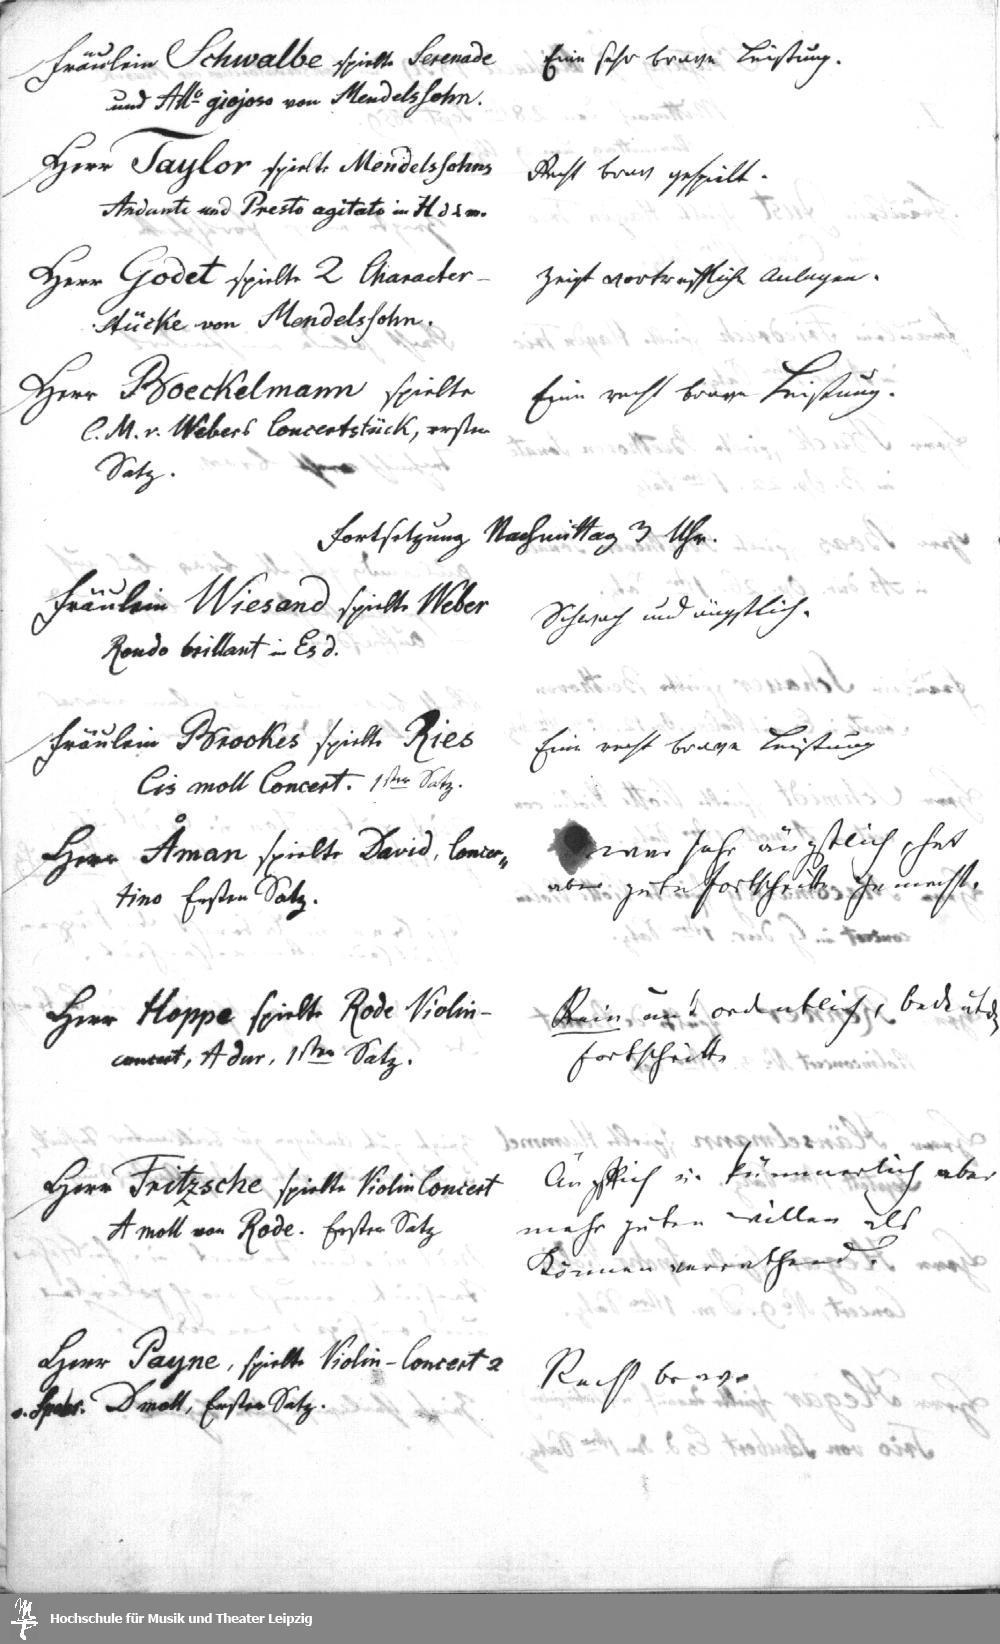 Fräulein Schwalbe spielte Serenade
und All⁰ giojoso von Mendelssohn.
Eine sehr brave Leistung.
Herr Taylor spielte Mendelssohns
Andante und Presto agitato in H d & m.
Recht brav gespielt.
Herr Godet spielte 2 Character-
stücke von Mendelssohn.
Zeigt vortreffliche Anlagen.
Herr Boeckelmann spielte
C. M. v. Webers Concertstück, ersten
Satz.
Eine recht brave Leistung.
Fortsetzung Nachmittag 3 Uhr.
Fräulein Wiesand spielte Weber
Rondo brillant in Es d.
Schwach und ängstlich.
Fräulein Brookes spielte Ries
Cis moll Concert. 1ster Satz.
Eine recht brave Leistung
Herr Åman spielte David, Concer-
tino Ersten Satz.
war sehr ängstlich, hat
aber gute Fortschritte gemacht.
Herr Hoppe spielte Rode Violin-
concert, A dur, 1ster Satz.
Rein und ordentlich, bedeutde
Fortschritte
Herr Fritzsche spielte Violin Concert
A moll von Rode. Ersten Satz
Ängstlich u. kümmerlich aber
mehr guten Willen als
Können verrathend.
Herr Payne, spielte Violin-Concert 2
v. Spohr. D moll, Ersten Satz.
Recht brav
Hochschule für Musik und Theater Leipzig